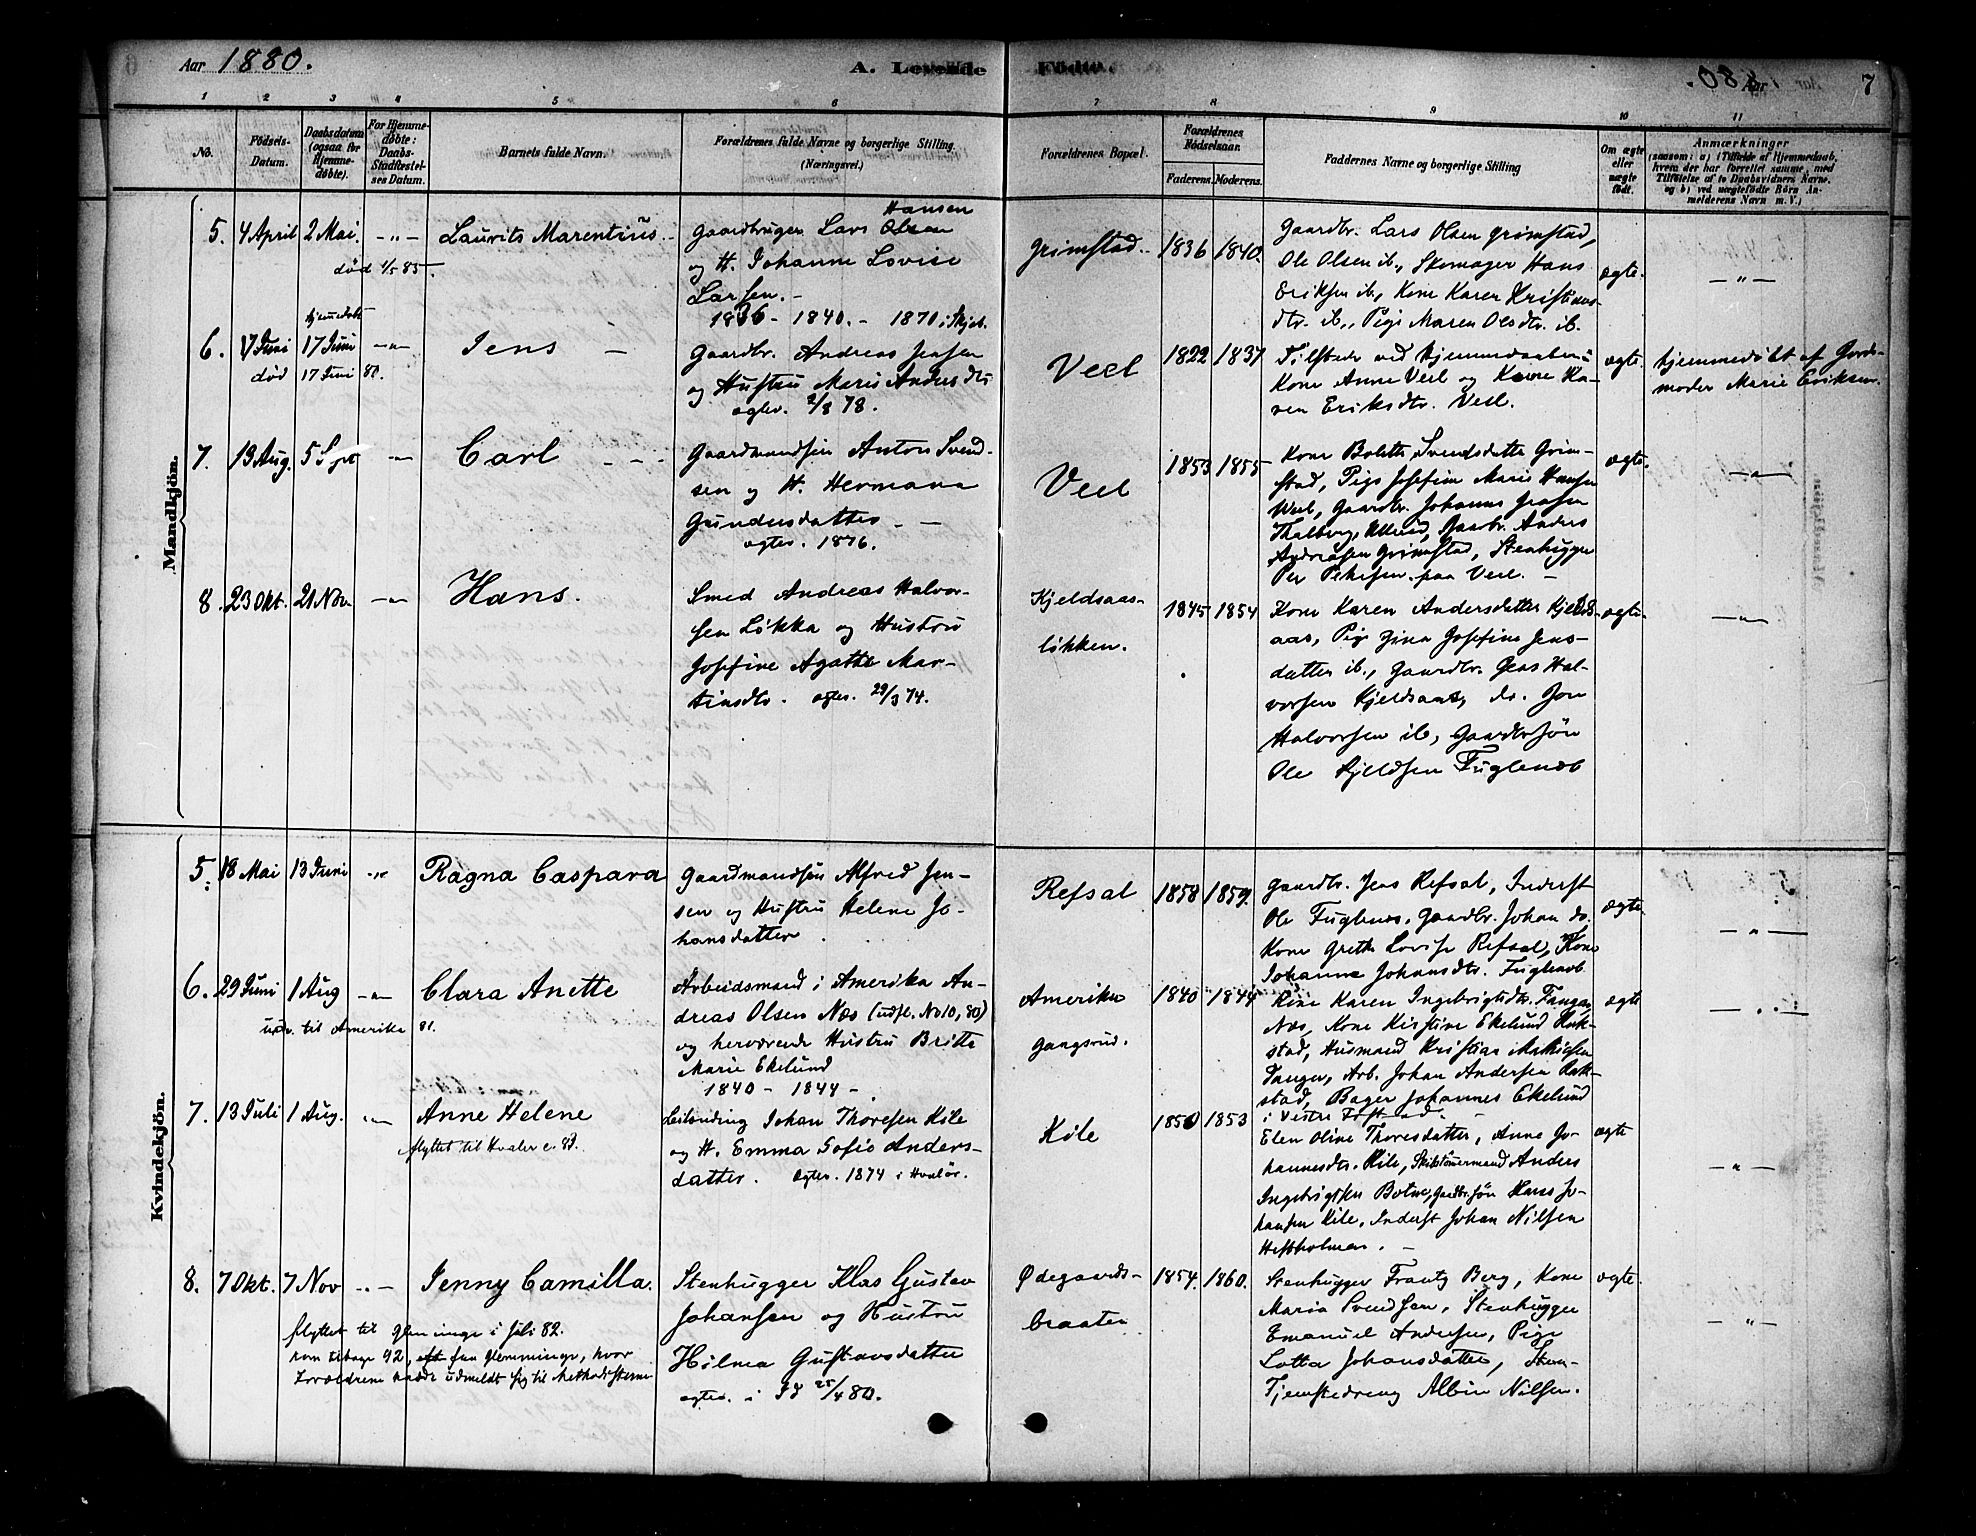 Aar 1880.
A. Levende Fødte.
7
1 2 3 4 5 6 7 8 9 10 11
No.
Fødsels-Datum.
Daabsdatum (ogsaa for Hjemmedøbte).
For Hjemmedøbte: Daabs-Stadfæstelses Datum.
Barnets fulde Navn.
Forældrenes fulde Navne og borgerlige Stilling. (Næringsvei.)
Forældrenes Bopæl.
Forældrenes Fødselsaar.
Faderens. Moderens.
Faddernes Navne og borgerlige Stilling
Om ægte eller uægte født.
Anmærkninger
(saasom: a) i Tilfælde af Hjemmedaab, hvem der har forrettet samme, med Tilføielse af to Daabsvidners Navne, og b) ved uægtefødte Børn Anmelderens Navn m. V.)
Mandkjøn.
5. 4 April 2 Mai. -"- Laurits Marentius
død 1/5 85.
Gaardbruger Lars Olsen
Hansen
og H. Johanne Lovise
Larsen. -
1836 - 1840. - 1870 i Skjeb.
Grimstad. 1836 1840.
Gaardbr. Lars Olsen Grimstad,
Ole Olsen ib., Skomager Hans
Eriksen ib., Kone Karen Kristians-
dtr. ib., Pige Maren Olsdtr. ib.
ægte. -"-
6. 17 Juni 17 Juni -"- Jens -
hjemmedøbt
død 17 Juni 80.
Gaardbr. Andreas Jensen
og Hustru Marie Andersdtr
ægtev. 2/8 78.
Veel 1822 1837
Tilstede ved Hjemmedaaben:
Kone Anne Veel og Kone Ka-
ren Eriksdtr. Veel.
ægte.
hjemmedøbt af Jorde-
moder Marie Eriksen.
7. 13 Aug. 5 Sept -"- Carl
Gaardmandssøn Anton Svend-
sen og H. Hermana
Gundersdatter -
ægtev. 1876.
Veel 1853 1855
Kone Bolette Svendsdatter Grim-
stad, Pige Josefine Marie Hansen
Veel, Gaardbr. Johannes
Thalberg, Ullerud, Gaardbr. Anders
Andreasen Grimstad, Stenhugger
Per Petersen paa Veel. -
ægte. -"-
8. 23 Okt. 21 Nov. -"- Hans.
Smed Andreas Halvor-
sen Løkka og Hustru
Josefine Agathe Mar-
tinsdtr. ægtev. 29/3 74.
Kjeldsaas-
løkken.
1845 1854
Kone Karen Andersdatter Kjelds-
aas, Pige Gina Josefine Jens-
datter ib., Gaardbr. Jens Hal-
vorsen Kjeldsaas, do. Jon
Halvorsen ib., Gaardbrsøn
Ole Kjeldsen Fuglenæb
ægte. -"-
Kvindekjøn.
5. 18 Mai 13 Juni -"- Ragna Caspara
Gaardmandssøn Alfred Jen-
sen og Hustru Helene Jo-
hansdatter.
Refsal 1858 1859.
Gaardbr. Jens Refsal, Inderst
Ole Fuglenæs, Gaardbr. Johan do.
Kone Grethe Lovise Refsal, Kone
Johanne Johansdtr. Fuglenæb
ægte. -"-
6. 29 Juni 1 Aug -"- Clara Anette
udv. til Amerika 81.
Arbeidsmand i Amerika An-
dreas Olsen Næs (udfl. No 10, 80)
og herværende Hustru Britta
Marie Ekelund
1840 - 1844 -
Amerika
Gangsrud.
1840 1844
Kone Karen Ingebrigtsdtr. Tangen,
Næs, Kone Kristine Ekelund Rok-
stad, Husmand Kristian Mathisen
Tangen, Arb. Johan Andersen Rok-
stad, Bager Johannes Ekelund
i Vestre
ægte -"-
7. 13 Juli 1 Aug. -"- Anne Helene
flyttet til Hvaler c. 83.
Leilending Johan Thoresen Kile
og H. Emma Sofie Anders-
datter. ægtev. 1874 i Hvaler.
Kile 1850 1853
Elen Oline Thoresdatter, Anna Jo-
hannesdtr. Kile, Skibstømmermand Anders
Ingebrigtsen Botne, Gaardbr.søn Hans Jo-
hansen Kile, Inderst Johan Nilsen
Hestholmen. -
ægte -"-
8. 7 Okt. 7 Nov -"- Jenny Camilla.
flyttet til Glemminge i Juli 82.
kom tilbage 92, fra Glemminge, hvor
Forældrene havde udmeldt sig til Methodisterne
Stenhugger Klas Gustav
Johansen og Hustru
Hilma Gustavsdatter
ægtev. i Id 25/4 80.
Ødegaards-
braaten
1854. 1860.
Stenhugger Frantz Berg, Kone
Maria Svendsen, Stenhugger
Emanuel Andersen, Pige
Lotta Johansdatter, Sten-
Tjenstedreng Albin Nilsen.
ægte. -"-